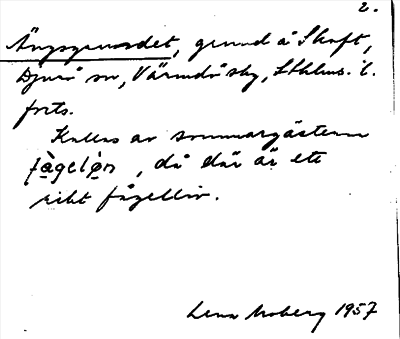 2.
Ängsgrundet, grund å Skaft,
Djurö sn, Värmdö skg, Sthlms. l.
forts.
Kallas av sommargästerna
fågelön, då där är ett
rikt fågelliv.
Lena Moberg 1957